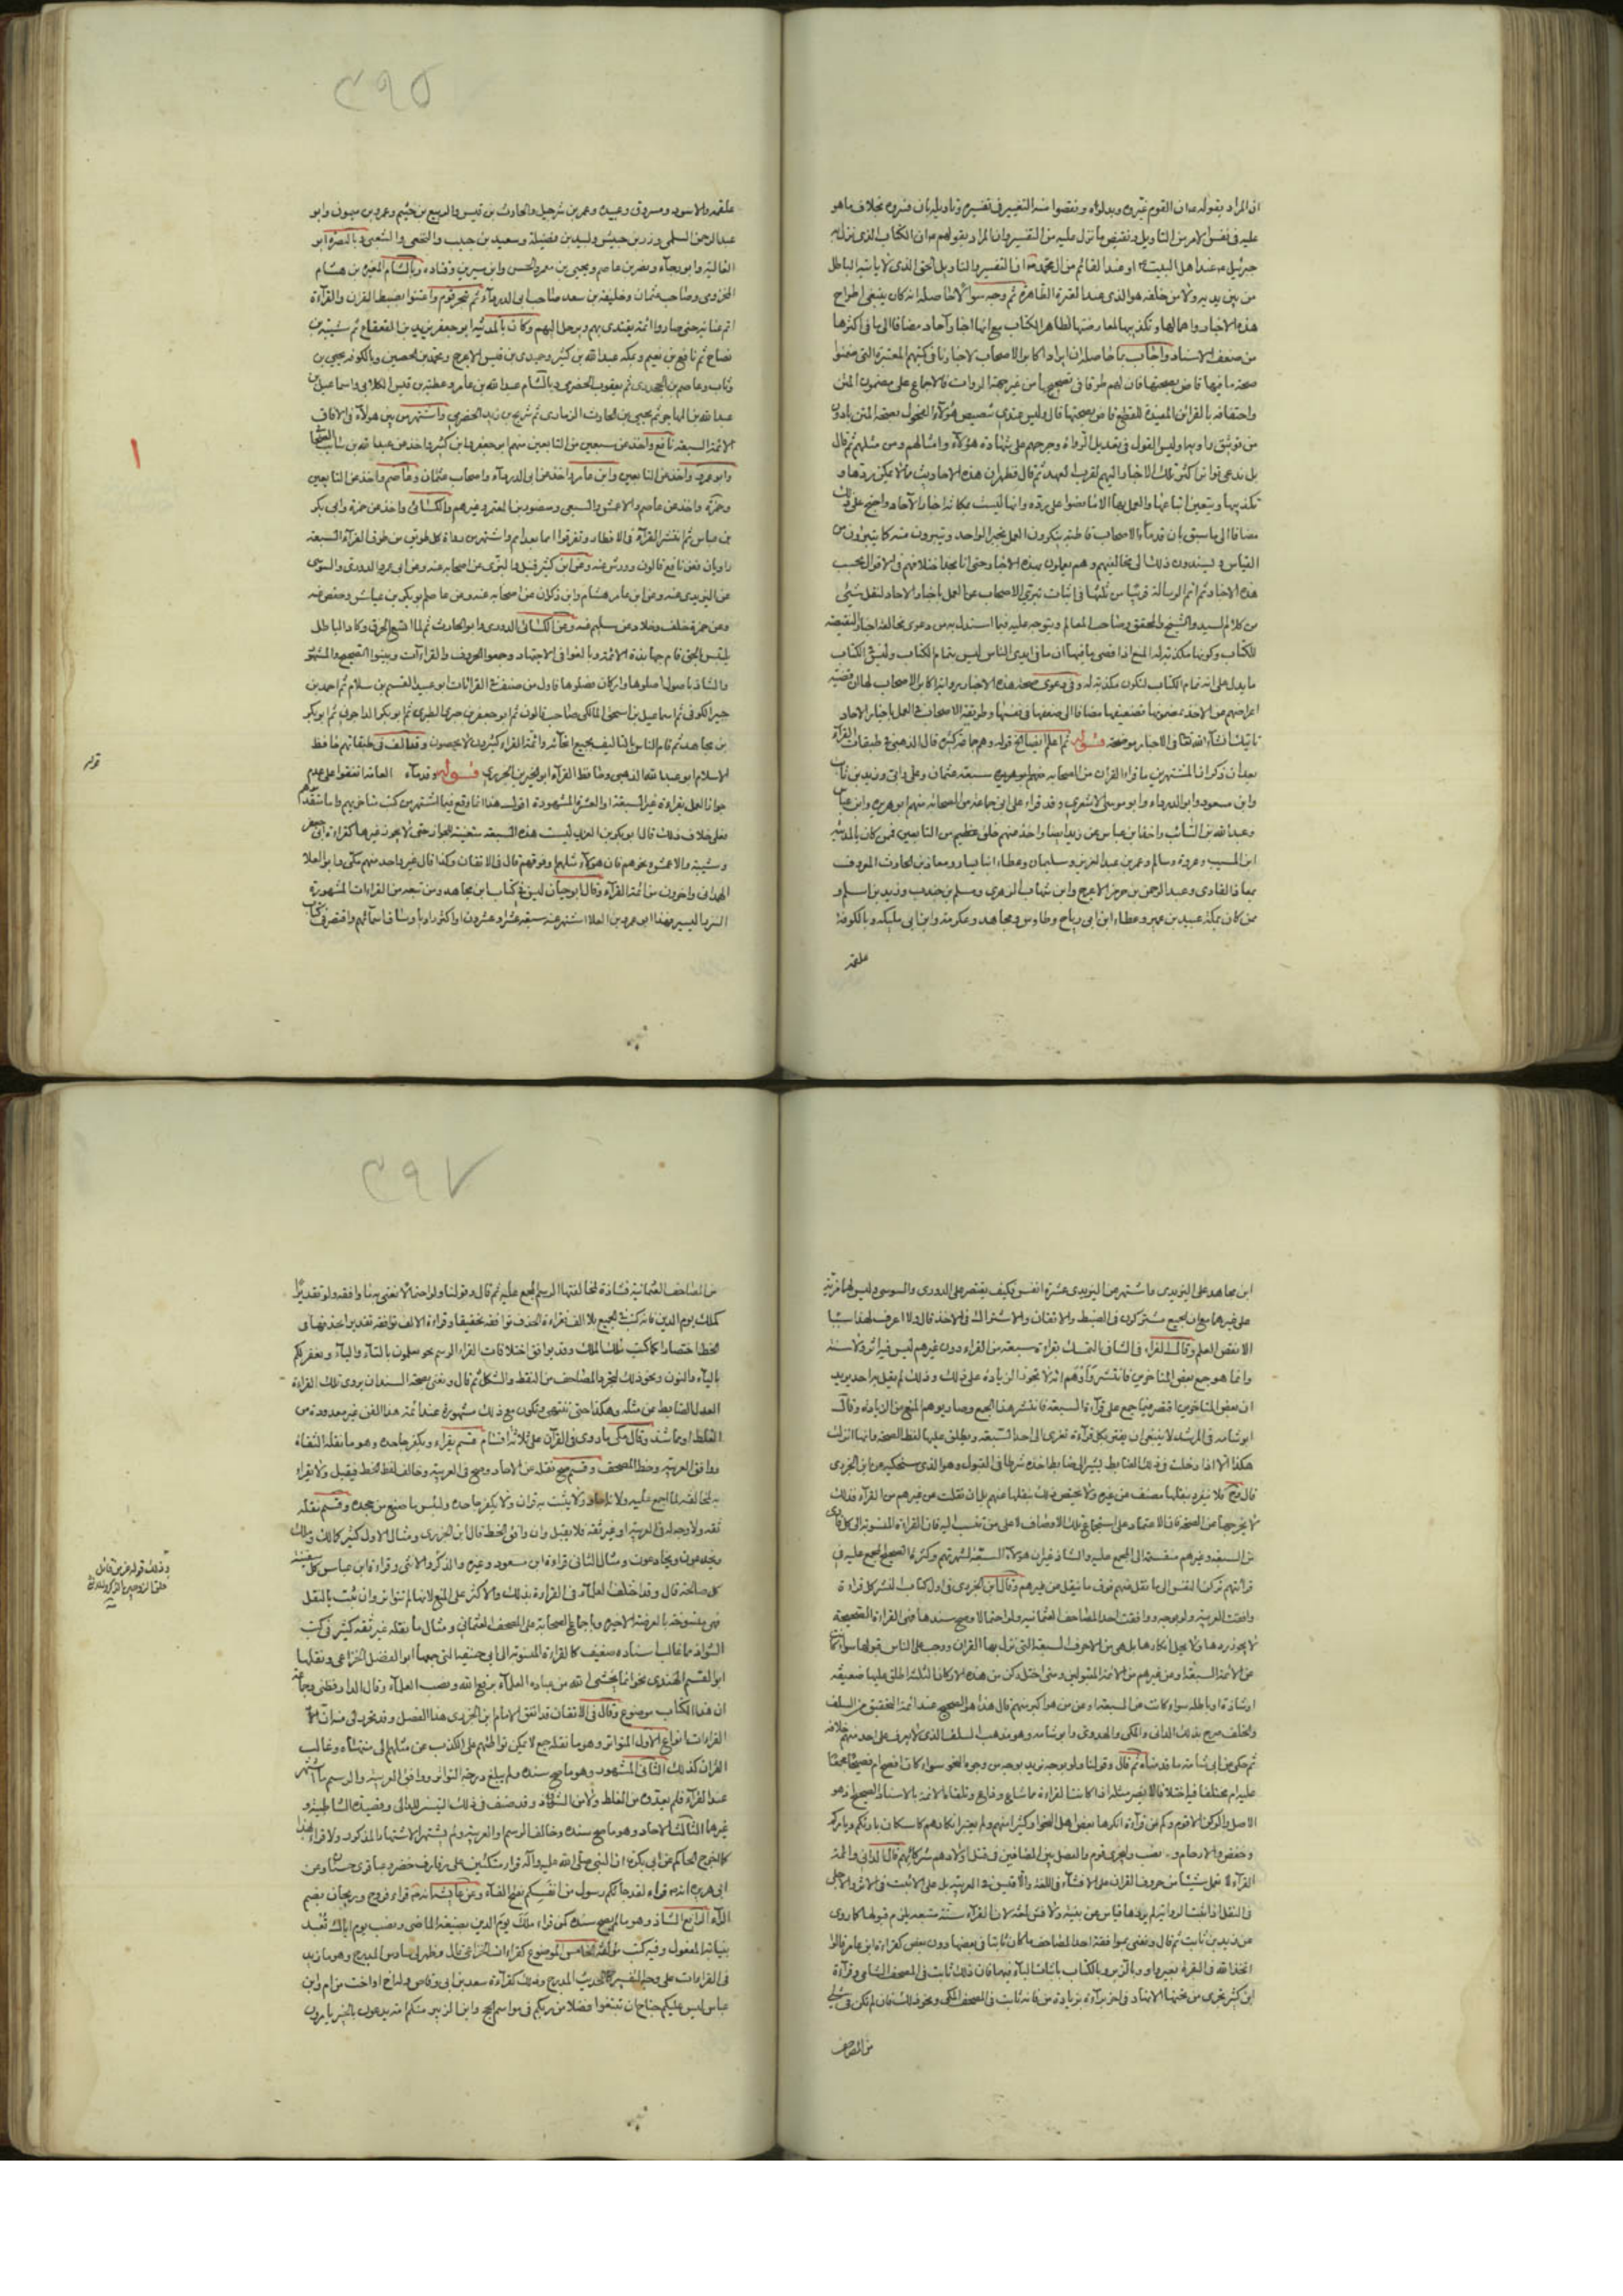 ان المراد بقوله ان القوم غيروه وبدلوه ونقصوا منه التغيير في تفسيره وتاويله بان فسروه بخلاف ما هو
عليه في نفس الامر من التاويل ونقيض ما نزل عليه من التفسير وان المراد بقولهم ان الكتاب الذي نزل به
جبرئيل عند اهل البيت او عند القائم من ال محمد ان التفسير والتاويل الحق الذي لا ياتيه الباطل
من بين يديه ولا من خلفه هو الذي عند العترة الطاهرة ثم وجه سوالا حاصله انه كان ينبغي اطراح
هذه الاخبار واهمالها وتكذيبها لمعارضتها لظاهر الكتاب مع انها اخبار آحاد مضافا الى ما في اكثرها
من ضعف الاسناد واجاب بما حاصله ان ايراد اكابر الاصحاب لاخبارنا في كتبهم المعتبرة التي ضمنوا
صحة ما فيها قاض بصحتها فان لهم طرقا في تصحيحها من غير جهة الروات كالاجماع على مضمون المتن
واحتفافه بالقرائن المفيدة للقطع قاض بصحتها قال وليس عندي تنصيص هؤلاء الفحول بصحة المتن بادون
من توثيق راويها وليس القول في تعديل الرواة وجرحهم على شهادة هؤلاء وامثالهم ومن مثلهم ثم قال
بل ندعي تواتر اكثر تلك الاخبار اليهم لقرب العهد ثم قال فظهر ان هذه الاحاديث مما لا يمكن ردها و
تكذيبها ويتعين اتباعها والعمل بها الا ما نصوا على رده وانها ليست مكانة اخبار الآحاد واحتج على ذلك
مضافا الى ما سبق بان قدماء الاصحاب قاطبة ينكرون العمل بخبر الواحد ويتبرون منه كما يتبرؤن من
القياس ويسندون ذلك الى مخالفيهم وهم يعملون بهذه الاخبار حتى انا نجد اختلافهم في الاقوال بحسب
هذه الاخبار ثم اتم الرسالة قريبا من ثلثها في اثبات تبري الاصحاب عن العمل باخبار الاحاد لنقل شيء
من كلام السيد والشيخ والمحقق وصاحب المعالم ويتوجه عليه فيما استدل به من دعوى مخالفة اخبار النقيصة
للكتاب وكونها مكذبة له المنع اذا قصى ما فيها ان ما في ايدي الناس ليس بتمام الكتاب وليس في الكتاب
ما يدل على انه تمام الكتاب لتكون مكذبة له وفي دعوى صحة هذه الاخبار برواية اكابر الاصحاب لها ان قضية
اعراضهم عن الاخذ بمضمونها تضعيفها مضافا الى ضعفها في نفسها وطريقة الاصحاب في العمل باخبار الاحاد
تاتيك انشآء الله تعالى في الاخبار موضحة قوله ثم اعلم ايضا الخ قوله وهم جماعة كثيرة قال الذهبي في طبقات القراء
بعد ان ذكر ان المشتهرين باقراء القرآن من الصحابة سبعة عثمان وعلي وابي وزيد بن ثابت
وابن مسعود وابو الدرداء وابو موسى الاشعري وقد قراء على ابي جماعة من الصحابة منهم ابو هريرة وابن عباس
وعبد الله بن السائب واخذ ابن عباس عن زيد ايضا واخذ منهم خلق عظيم من التابعين فممن كان بالمدينة
ابن المسيب وعروة وسالم وعمر بن عبد العزيز وسليمان وعطاء ابنا يسار ومعاذ بن الحارث المعروف
بمعاذ القاري وعبد الرحمن بن هرمز الاعرج وابن شهاب الزهري ومسلم بن جندب وزيد بن اسلم و
ممن كان بمكة عبيد بن عمير وعطاء بن ابي رباح وطاوس ومجاهد وعكرمة وابن ابي مليكة وبالكوفة
علقمة
٤٩٥
علقمة والاسود ومسروق وعبيدة وعمر بن شرحبيل والحارث بن قيس والربيع بن خيثم وعمرو بن ميمون وابو
عبد الرحمن السلمي وزر بن حبيش وعبيد بن فضيلة وسعيد بن جبير والنخعي والشعبي وبالبصرة ابو
العالية وابو رجاء ونصر بن عاصم ويحيى بن يعمر والحسن وابن سيرين وقتاده وبالشام المغيرة بن هشام
المخزومي وصاحب عثمان وخليفة بن سعد صاحب ابي الدرداء ثم تجرد قوم واعتنوا بضبط القرآن والقراءة
اتم عناية حتى صاروا ائمة يقتدى بهم ويرحل اليهم وكان بالمدينة ابو جعفر يزيد بن القعقاع ثم شيبة بن
نصاح ثم نافع بن نعيم وبمكة عبد الله بن كثير وحميد بن قيس الاعرج ومحمد بن محيصن وبالكوفة يحيى بن
وثاب وعاصم بن الجحدري ثم يعقوب الحضرمي وبالشام عبد الله بن عامر وعطية بن قيس الكلابي واسماعيل بن
عبد الله بن المهاجر ثم يحيى بن الحارث الزماري ثم شريح بن زيد الحضرمي واشتهر من بين هولاء في الآفاق
الائمة السبعة نافع واخذ عن سبعين من التابعين منهم ابو جعفر وابن كثير واخذ عن عبد الله بن سائب الصحابي
وابو عمرو واخذ عن التابعين وابن عامر واخذ عن ابي الدرداء واصحاب عثمان وعاصم واخذ عن التابعين
وحمزة واخذ عن عاصم والاعمش والسبيعي ومنصور بن المعتمر وغيرهم والكسائي واخذ عن حمزة وابي بكر
بن عياش ثم انتشر القراءة في الاقطار وتفرقوا امما بعد امم واشتهر من رواة كل طريق من طرق القراءة السبعة
راويان فعن نافع قالون وورش عنه وعن ابن كثير قنبل والبزي عن اصحابه عنه وعن ابي عمرو الدوري والسوسي
عن اليزيدي عنه وعن ابن عامر هشام وابن ذكوان عن اصحابه عنه وعن عاصم ابو بكر بن عياش وحفص عنه
وعن حمزة خلف وخلاد عن سليم عنه وعن الكسائي الدوري وابو الحارث ثم لما اتسع الخرق وكاد الباطل
يلتبس الحق قام جهابذة الائمة وبالغوا في الاجتهاد وجمعوا الحروف والقراءات وميزوا الصحيح والمشهور
والشاذ باصول اصلوها واركان فصلوها فاول من صنف في القراءات ابو عبيد القسم بن سلام ثم احمد بن
جبير الكوفي ثم اسماعيل بن اسحق المالكي صاحب قالون ثم ابو جعفر بن جرير الطبري ثم ابو بكر الداجوني ثم ابو بكر
بن مجاهد ثم قام الناس بالتاليف بجميع انحائه وائمة القراء كثيرون لا يحصون وقد الف في طبقاتهم حافظ
الاسلام ابو عبد الله الذهبي وحافظ القراء ابو الخير بن الجزري قوله وقدماء العامة اتفقوا على عدم
جواز العمل بقراءة غير السبعة او العشرة المشهودة اقول هذا انما وقع فيما اشتهر من كتب متاخريهم واما متقدميهم
فعلى خلاف ذلك قال ابو بكر بن العربي ليست هذه السبعة متعينة للجواز حتى لا يجوز غيرها كقراءة ابي جعفر
وشيبة والاعمش ونحوهم فان هؤلاء مثلهم او فوقهم قال في الاتقان وكذا قال غير واحد منهم مكي وابو العلا
الهمداني واخرون من ائمة القراء وقال ابو حيان ليس في كتاب ابن مجاهد ومن تبعه من القراءات المشهورة
النزر اليسير فهذا ابو عمرو بن العلا اشتهر عنه سبعة عشر راويا وساق اسمائهم واقتصر في كتاب
قوله
ابن مجاهد على اليزيدي واشتهر عن اليزيدي عشرة انفس فكيف يقتصر على الدوري والسوسي وليس لهما مزية
على غيرهما مع ان الجميع مشتركون في الضبط والاتقان والاشتراك في الاخذ قال ولا اعرف لهذا سببا
الا نقص العلم وقال القراء في الشافي التمسك بقراءة سبعة من القراء دون غيرهم ليس فيه اثر ولا سنة
وانما هو جمع بعض المتاخرين فانتشر واوهم انه لا تجوز الزيادة على ذلك وذلك لم يقل به احد يريد
ان بعض المتاخرين اقتصر فيما جمع على قراءة السبعة فانتشر هذا الجمع وصار يوهم المنع من الزيادة وقال
ابو شامة في المرشد لا ينبغي ان يغتر بكل قراءة تعزى الى احد السبعة ويطلق عليها لفظ الصحة وانها انزلت
هكذا الا اذا دخلت في ذلك الضابط يشير الى ضابط اخذه شرطا في القبول وهو الذي سنحكيه عن ابن الجزري
قال وح فلا ينفرد بنقلها مصنف عن غيره ولا يختص ذلك بنقلها عنهم بل ان نقلت عن غيرهم من القراء فذلك
لا يخرجها عن الصحة فان الاعتماد على استجماع تلك الاوصاف لا على من تنسب اليه فان القراءة المنسوبة الى كل قاري
من السبعة وغيرهم منقسمة الى المجمع عليه والشاذ غير ان هؤلاء السبعة لشهرتهم وكثرة الصحيح المجمع عليه في
قرائتهم تركن النفس الى ما نقل عنهم فوق ما ينقل عن غيرهم وقال ابن الجزري في اول كتاب النشر كل قراءة
وافقت العربية ولو بوجه ووافقت احد المصاحف العثمانية ولو احتمالا وصح سندها فهي القراءة الصحيحة
لا يجوز ردها ولا يحل انكارها بل هي من الاحرف السبعة التي نزل بها القرآن ووجب على الناس قبولها سواء كانت
عن الائمة السبعة او عن غيرهم من الائمة المقبولين ومتى اختل ركن من هذه الاركان الثلثة اطلق عليها ضعيفة
او شاذة او باطلة سواء كانت عن السبعة او عن من هو اكبر منهم قال هذا هو الصحيح عند ائمة التحقيق من السلف
والخلف صرح بذلك الداني والمكي والمهدوي وابو شامة وهو مذهب السلف الذي لا يعرف على احد منهم خلافه
ثم حكى عن ابي شامة ما قدمناه ثم قال وقولنا ولو بوجه نريد بوجه من وجوه النحو سواء كان افصح ام فصيحا مجمعا
عليه ام مختلفا فيه اختلافا لا يضر مثله اذا كانت القراءة مما شاع وذاع وتلقاها الائمة بالاسناد الصحيح اذ هو
الاصل والركن الاقوم وكم من قراءة انكرها بعض اهل النحو او كثير منهم ولم يعتبر انكارهم كاسكان بارئكم ويامركم
وخفض والارحام ونصب وليجزي قوم والفصل بين المضافين في قتل اولادهم شركائهم قال الداني وائمة
القراء لا تعمل شيئا من حروف القرآن على الافشاء في اللغة والاقيس في العربية بل على الاثبت في الاثر والاصح
في النقل اذا ثبتت الرواية لم يردها قياس عربية ولا فشو لغة لان القراءة سنة متبعة يلزم قبولها كما روى
عن زيد بن ثابت ثم قال ونعني بموافقة احد المصاحف ما كان ثابتا في بعضها دون بعض كقراءة ابن عامر قالوا
اتخذ الله في البقرة بغير واو وبالزبر وبالكتاب باثبات الباء فيهما فان ذلك ثابت في المصحف الشامي وقراءة
ابن كثير تجري من تحتها الانهار في اخر براءة بزيادة من فانه ثابت في المصحف المكي ونحو ذلك فان لم تكن في شيء
من المصاحف
٤٩٧
من المصاحف العثمانية فشاذة لمخالفتها الرسم المجمع عليه ثم قال وقولنا ولو احتمالا نعني به ما وافقه ولو تقديرا
كملك يوم الدين فانه كتب في الجميع بلا الف فقراءة الحذف توافقه تحقيقا وقراءة الالف توافقه تقديرا لحذفها في
الخط اختصارا كما كتب ملك الملك وقد يوافق اختلافات القراء الرسم نحو تعملون بالتاء والياء ويغفر لكم
بالياء والنون ونحو ذلك لتجرد المصاحف من النقط والشكل ثم قال ونعني بصحة السند ان يروي تلك القراءة
العدل الضابط عن مثله وهكذا حتى تنتهي وتكون مع ذلك مشهورة عند ائمة هذا الفن غير معدودة من
الغلط او مما شذ وقال مكي ما روى في القرآن على ثلاثة اقسام قسم يقراء ويكفر جاحده وهو ما نقله الثقاة
ووافق العربية وخط المصحف وقسم صح نقله من الاحاد وصح في العربية وخالف لفظ الخط فيقبل ولا يقراء
به لمخالفته لما اجمع عليه ولا نه احاد ولا يثبت به قرآن ولا يكفر جاحده ولبئس ما صنع من جحده وقسم نقله
ثقة ولا وجه له في العربية او غير ثقة فلا يقبل وان وافق الخط قال ابن الجزري ومثال الاول كثير كمالك وملك
ويخدعون ويخادعون ومثال الثاني قراءة ابن مسعود وغيره والذكر والانثى وقراءة ابن عباس كل سفينة
كل صالحة قال وقد اختلف العلماء في القراءة بذلك والاكثر على المنع لانها لم تتواتر وان ثبتت بالنقل
فهي منسوخة بالعرضة الاخيرة وباجماع الصحابة على المصحف العثماني ومثال ما نقله غير ثقة كثير في كتب
الشواذ مما غالب اسناده ضعيف كالقراءة المنسوبة الى ابي حنيفة التي جمعها ابو الفضل الخزاعي ونقلها
ابو القسم الهندي نحو انما يخشى الله من عباده العلماء برفع الله ونصب العلماء وقال الدارقطني وجماعة
ان هذا الكتاب موضوع وقال في الاتقان قد اتقن الامام ابن الجزري هذا الفصل وقد تحرر لي منه ان
القراءات انواع الاول المتواتر وهو ما نقله جمع لا يمكن تواطئهم على الكذب عن مثلهم الى منتهاه وغالب
القرآن كذلك الثاني المشهود وهو ما صح سنده ولم يبلغ درجة التواتر ووافق العربية والرسم ما اشتهر
عند القراء فلم يعدوه من الغلط ولا من الشواذ وقد صنف في ذلك التيسير للداني وقصيدة الشاطبي و
غيرها الثالث الاحاد وهو ما صح سنده وخالف الرسم او العربية ولم يشتهر الاشتهار المذكور ولا قراء بهذا
كما اخرج الحاكم عن ابي بكرة ان النبي صلى الله عليه وآله قراء متكئين على رفارف خضر وعباقري حسان وعن
ابي هريرة انه قراء لقد جائكم رسول من انفسكم بفتح الفاء وعن عايشة انه قراء فروح وريحان بضم
الراء الرابع الشاذ وهو ما لم يصح سنده كمن قراء ملك يوم الدين بصيغة الماضي ونصب يوم اياك تعبد
ببنائه للمفعول وفيه كتب مؤلفة الخامس الموضوع كقراءات الخزاعي قال وظهر لي سادس المدرج وهو ما زيد
في القراءات على وجه التفسير كالحديث المدرج وذلك كقراءة سعد بن ابي وقاص وله اخ او اخت من ام وابن
عباس ليس عليكم جناح ان تبتغوا فضلا من ربكم في مواسم الحج وابن الزبير منكم امة يدعون بالخير ويامرون